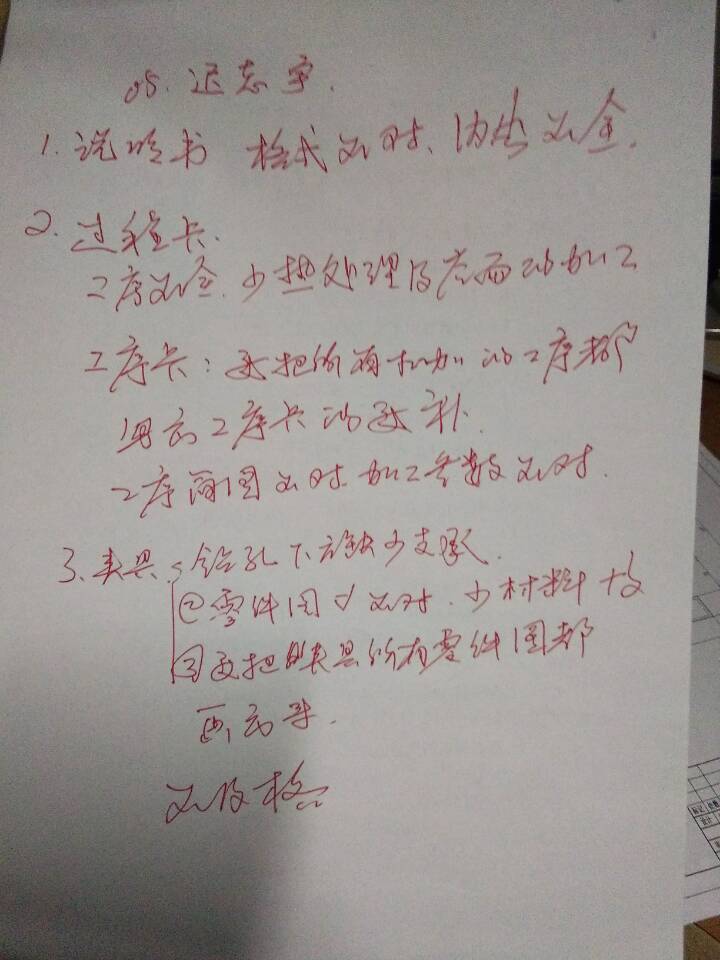 05. 迟志宇.
1. 说明书 格式不对、内容不全.
2. 过程卡.
工序不全. 少热处理及表面的加工
工序卡: 要把所有机加的工序都
写为工序卡的要补.
工序简图不对 加工参数不对.
3. 夹具 钻孔下方缺少支承.
②零件图 不对. 少材料
③要把夹具所有零件图都
画出来.
不及格